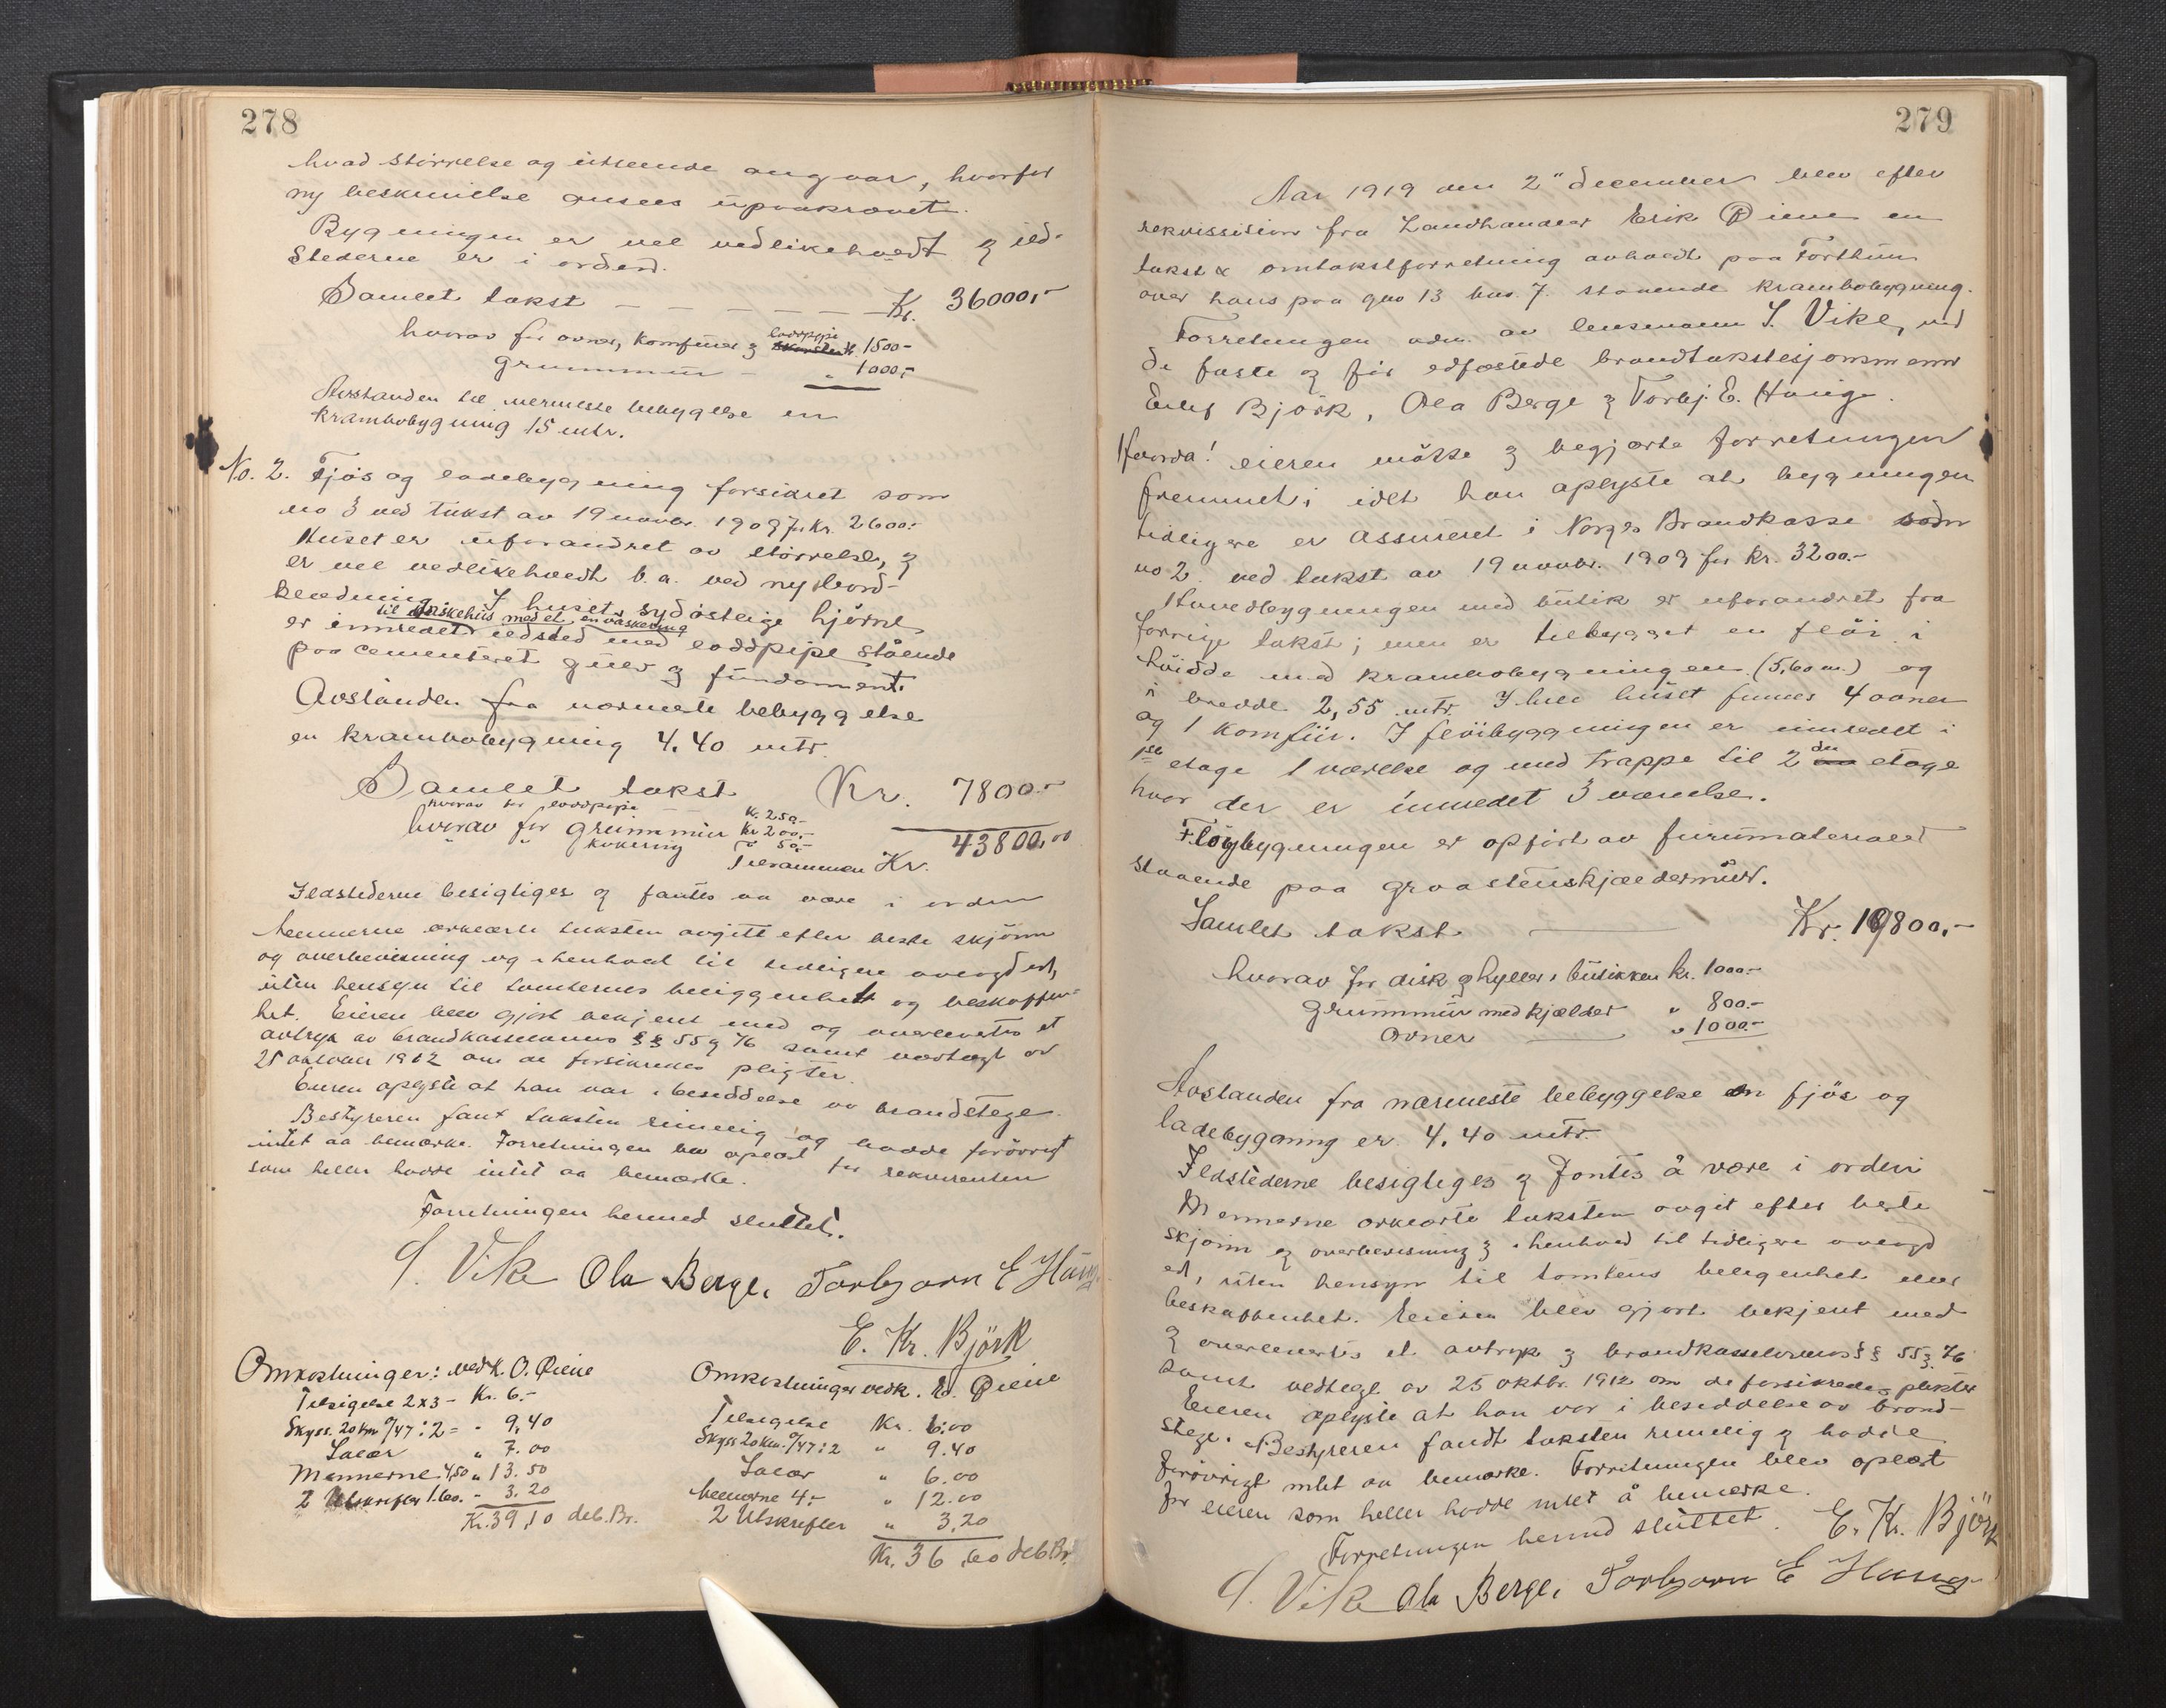 278
hvad störrelse og utseende angaar, hvorfor
ny beskrivelse ansees upaakrævet.
Bygningen er vel vedlikeholdt og ild-
stederne er i orden.
Samlet takst — — — — — — Kr. 36000,-
loddpipe
hvorav for ovner, komfurer og skorsten Kr. 1500-
grunnmur — „ 1000,-
Avstanden til nærmeste bebyggelse en
krambobygning 15 mtr.
No. 2. Fjös og ladebygning forsikret som
no 3 ved takst av 19 novbr. 1909 for Kr. 2600.-
Huset er uforandret av störrelse, og
er vel vedlikeholdt b. a. ved ny bord-
klædning. I husets sydöstlige hjörne
til önskehus med et
er innredet ildsted med loddpipe stående
paa cementeret gulv og fundament.
Avstanden fra nærmeste bebyggelse
en krambobygning 4.40 mtr.
Samlet takst Kr. 7800.-
hvorav for loddpipe Kr. 250-
hvorav for grunnmur Kr 200,-
„ „ 50,-
Tilsammen Kr. 43800,00
Ildstederne besigtiges og fantes aa være i orden
Mennerne erklærte taksten avgitt efter beste skjönn
og overbevisning og i henhold til tidligere avlagd ed,
uten hensyn til tomternes beliggenhet og beskaffen-
het. Eieren blev gjort bekjent med og overlevertes et
avtryk av brandkasselovens §§ 55 og 76 samt vedtægt av
25 oktober 1912 om de forsikredes pligter.
Eieren oplyste at han var i besiddelse av brandstege.
Bestyreren fant taksten rimelig og hadde forövrigt
intet aa bemærke. Forretningen blev oplæst for rekvirenten
som heller hadde intet aa bemærke.
Forretningen hermed sluttet.
S. Vike Ola Berge, Torbjørn E Haug
E. Kr. Björk
Omkostninger: vedk. O. Øiene
Tilsigelse 2x3 - Kr. 6.-
Skyss. 20 km a/47 : 2 = - 9,40
Salær „ 7.00
Mennerne 4,50 „ 13.50
2 Utskrifter 1.60. - 3.20
Kr. 39,10 deb. Br.
Omkostninger vedk. E. Øiene
Tilsigelse Kr. 6.00
Skyss 20 km. a/47 : 2 „ 9.40
Salær „ 6.00
Mennerne 4:- „ 12.00
2 Utskrifter „ 3,20
Kr. 36,60 deb Br.
279
Aar 1919 den 2" december blev efter
rekvissision fra Landhandler Erik Øiene en
takst & omtakstforretning avholdt paa Forthun
over hans paa gno 13 bno. 7. staaende krambobygning.
Forretningen adm. av lensmann S. Vike, med
de faste og för edfæstede brandtakstesjönnmenn
Eilif Björk, Ola Berge og Torbj. E. Haug.
Hvorda! eieren mötte og begjærte forretningen
fremmet, idet han oplyste at bygningen
tidligere er assureret i Norges Brandkasse som
no 2. ved takst av 19 novbr. 1909 for kr. 3200.-
Hovedbygningen med butik er uforandret fra
forrige takst; men er tilbygget en flöi i
höidde med krambobygningen (5,60 m.) og
i bredde 2,55 mtr. I hele huset finnes 4 ovner
og 1 komfür. I flöibygningen er innredet i
1ste etage 1 værelse og med trappe til 2 den etage
hvor der er innredet 3 værelse.
Flöybygningen er opfört av furumateriall
staaende paa graastenskjældermur.
Samlet takst — Kr. 19800,-
hvorav for disk og hyller i butikken kr. 1000.-
grunnmur med kjælder „ 800.-
ovner — „ 1000.-
Avstanden fra nærmeste bebyggelse en fjös og
ladebygning er 4.40 mtr.
Ildstederne besigtiges og fantes å være i orden
Mennerne erklærte taksten avgit efter beste
skjönn og overbevisning og i henhold til tidligere avlagd
ed, uten hensyn til tomtens beligenhet eller
beskaffenhet. Eieren blev gjort bekjent med
og overlevertes et avtryk og brandkasselovens §§ 55 og 76
samt vedtegt av 25 oktbr. 1912 om de forsikredes plikter
Eieren oplyste at han var i besiddelse av brand-
stege. Bestyreren fandt taksten rimelig og hadde
forövrigt intet aa bemærke. Forretningen blev oplæst
for eieren som heller hadde intet å bemerke.
Forretningen hermed sluttet. E. Kr. Björk
S. Vike Ola Berge, Torbjørn E Haug